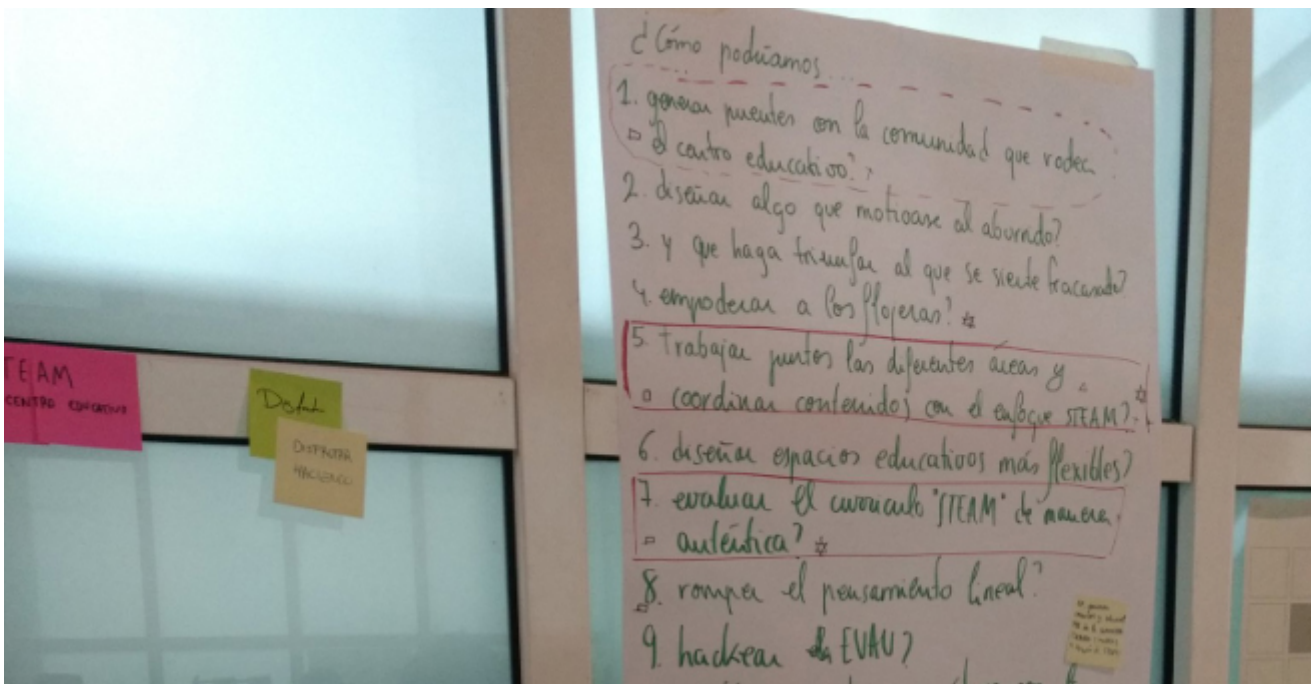 ¿Cómo podríamos...
1. generar puentes con la comunidad que rodea
el centro educativo?
2. diseñar algo que motivase al aburrido?
3. y que haga triunfar al que se siente fracasado?
4. empoderar a los flojeras?
5. Trabajar juntos las diferentes áreas y
coordinar contenidos con el enfoque STEAM?
6. diseñar espacios educativos más flexibles?
7. evaluar el currículo "STEAM" de manera
auténtica?
8. romper el pensamiento lineal?
9. hackear la EVAU?
TEAM
CENTRO EDUCATIVO
DISFRUTAR
HACIENDO